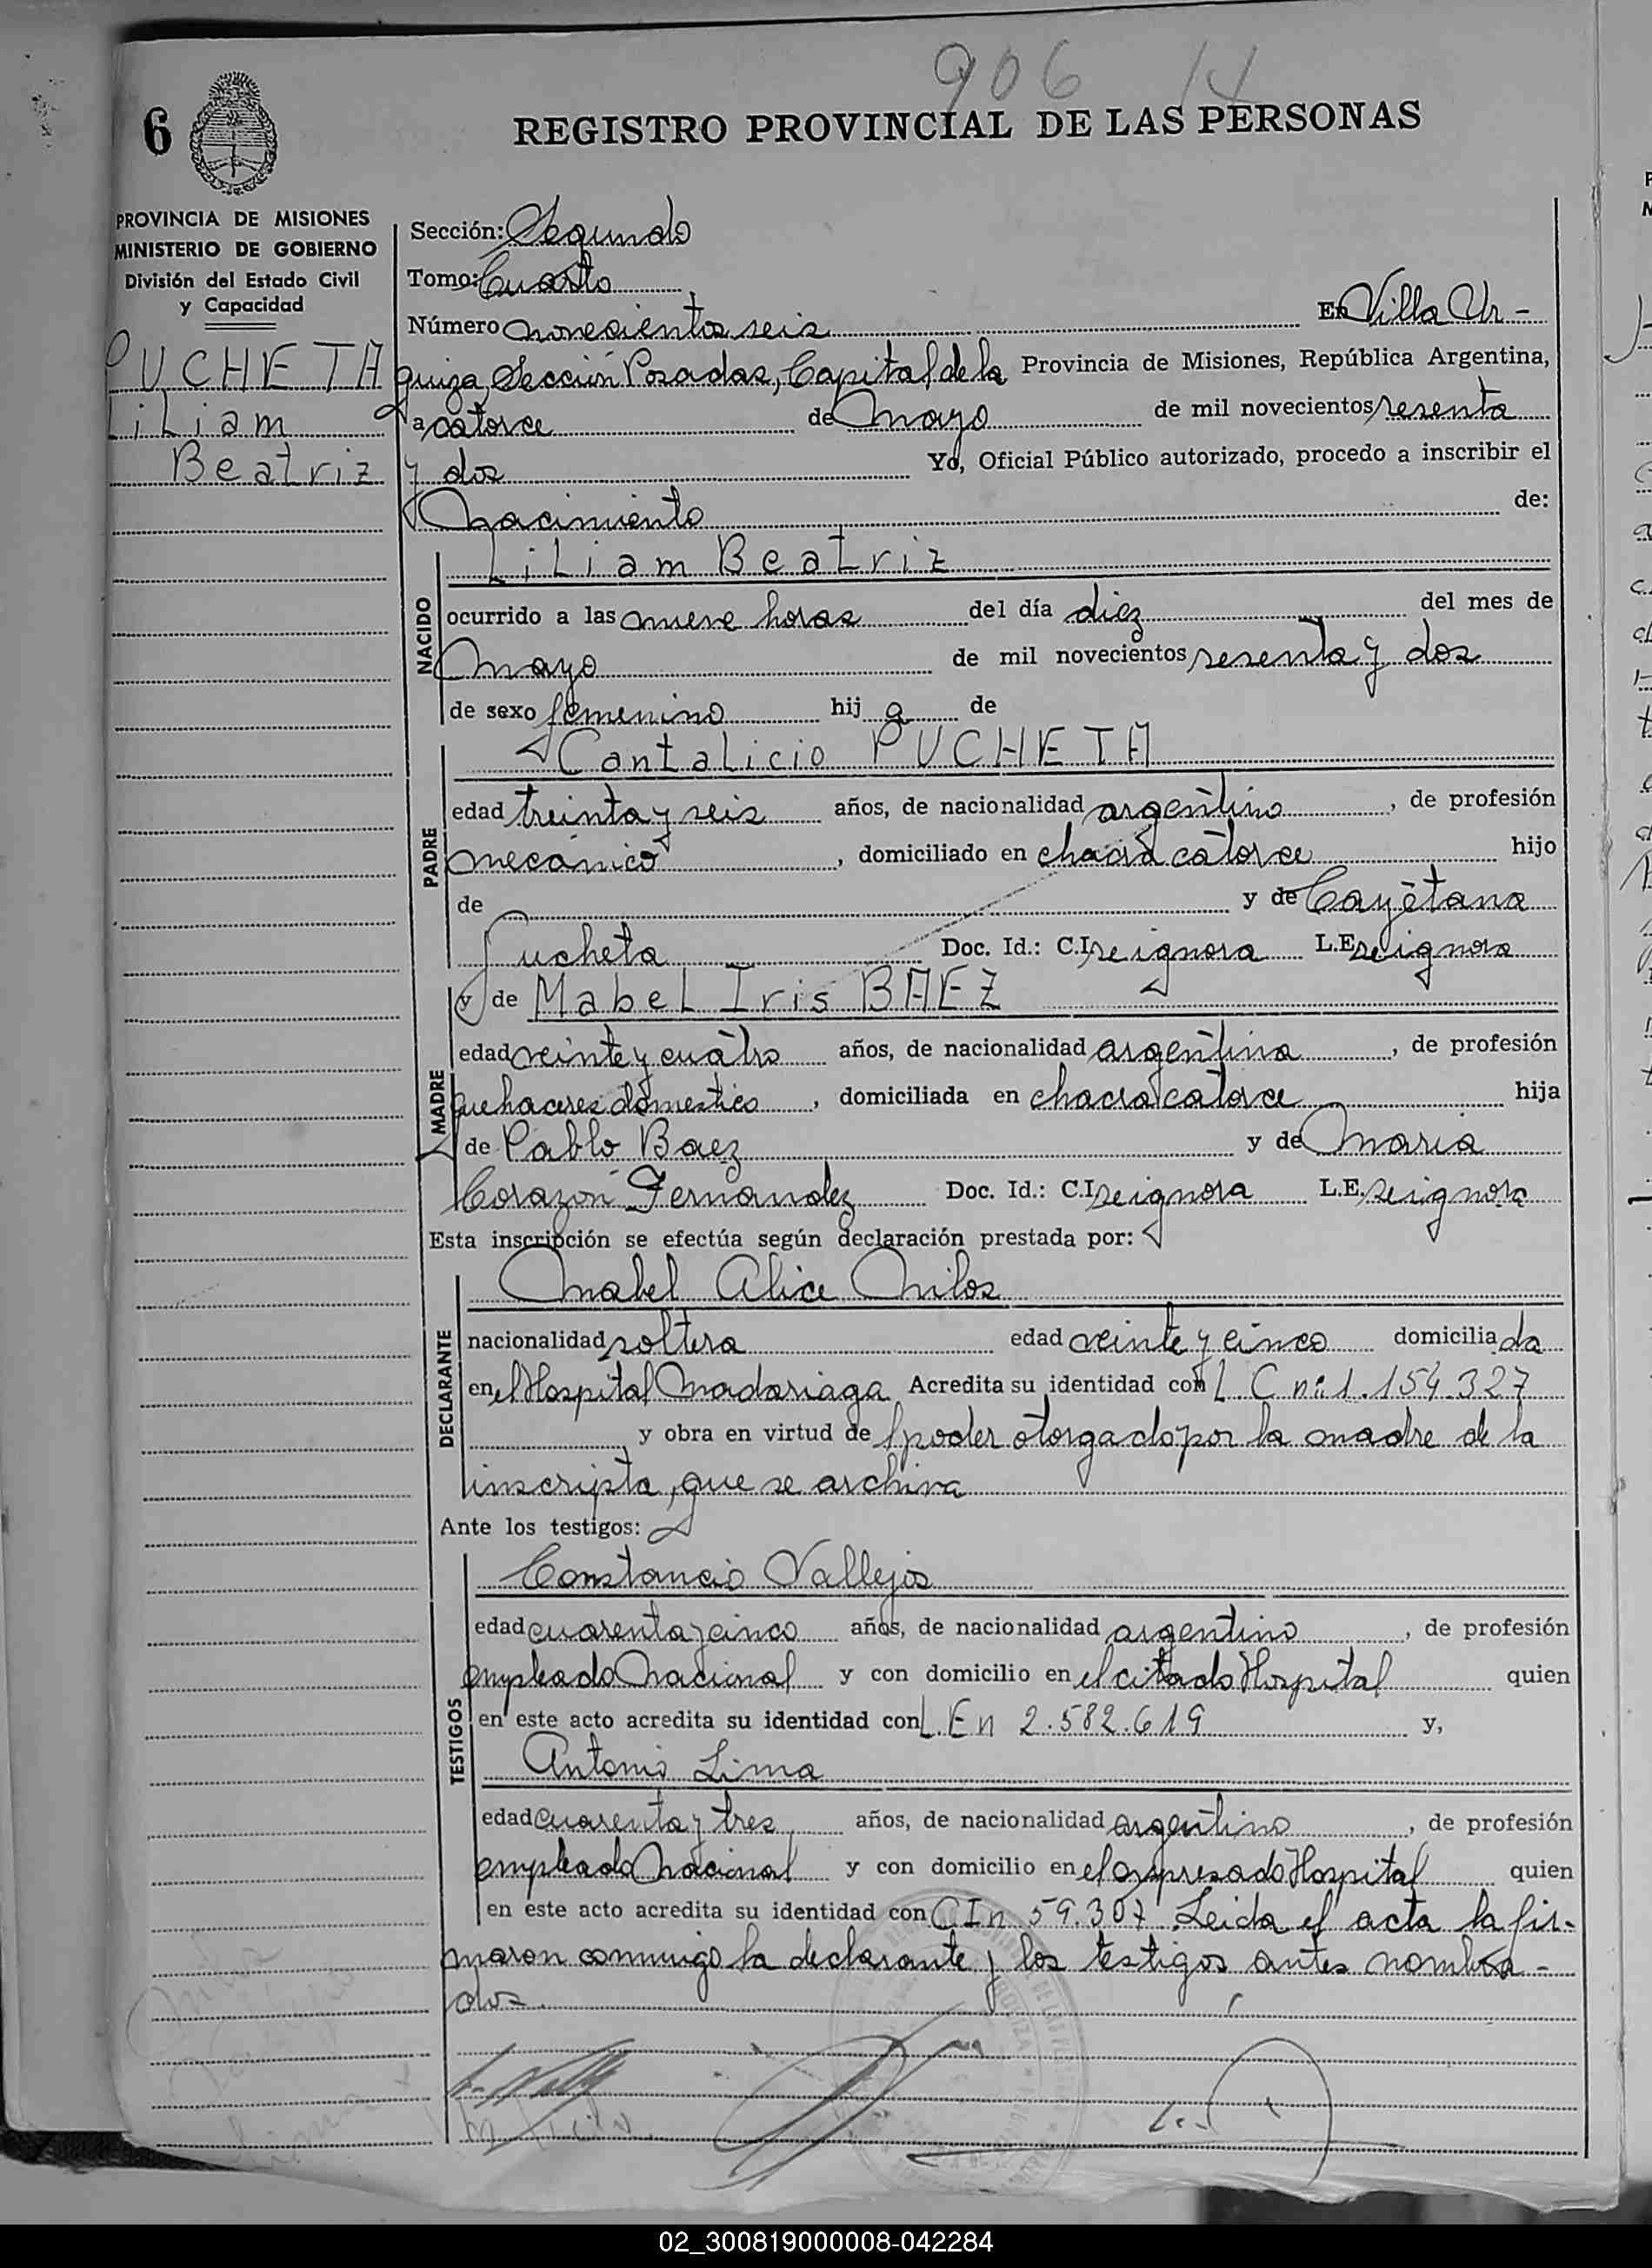 906 14
6
REGISTRO PROVINCIAL DE LAS PERSONAS
PROVINCIA DE MISIONES
MINISTERIO DE GOBIERNO
División del Estado Civil
y Capacidad
PUCHETA
Liliam
Beatriz
Sección: Segundo
Tomo: Cuarto
Número novecientos seis En Villa Ur-
quiza, Sección Posadas, Capital de la Provincia de Misiones, República Argentina,
a catorce de mayo de mil novecientos sesenta
y dos Yo, Oficial Público autorizado, procedo a inscribir el
Nacimiento de:
NACIDO
Liliam Beatriz
ocurrido a las nueve horas del día diez del mes de
mayo de mil novecientos sesenta y dos
de sexo femenino hij a de
PADRE
Cantalicio PUCHETA
edad treinta y seis años, de nacionalidad argentino, de profesión
mecánico, domiciliado en chacra catorce hijo
de y de Cayetana
Pucheta Doc. Id.: C.I. se ignora L.E. se ignora
MADRE
y de Mabel Iris BAEZ
edad veinte y cuatro años, de nacionalidad argentina, de profesión
quehaceres domestico, domiciliada en chacra catorce hija
de Pablo Baez y de Maria
Corazón Fernandez Doc. Id.: C.I. se ignora L.E. se ignora
Esta inscripción se efectúa según declaración prestada por:
DECLARANTE
Mabel Alice Milos
nacionalidad soltera edad veinte y cinco domicilia da
en el Hospital Madariaga Acredita su identidad con L. C nº 1.154.327
y obra en virtud de poder otorgado por la madre de la
inscripta, que se archiva
Ante los testigos:
TESTIGOS
Constancio Vallejos
edad cuarenta y cinco años, de nacionalidad argentino, de profesión
empleado Nacional y con domicilio en el citado Hospital quien
en este acto acredita su identidad con L. E n 2.582.619 y,
Antonio Lima
edad cuarenta y tres años, de nacionalidad argentino, de profesión
empleado Nacional y con domicilio en el expresado Hospital quien
en este acto acredita su identidad con C I n 59.307. Leida el acta la fir-
maron conmigo la declarante y los testigos antes nombra-
dos.
02_300819000008-042284